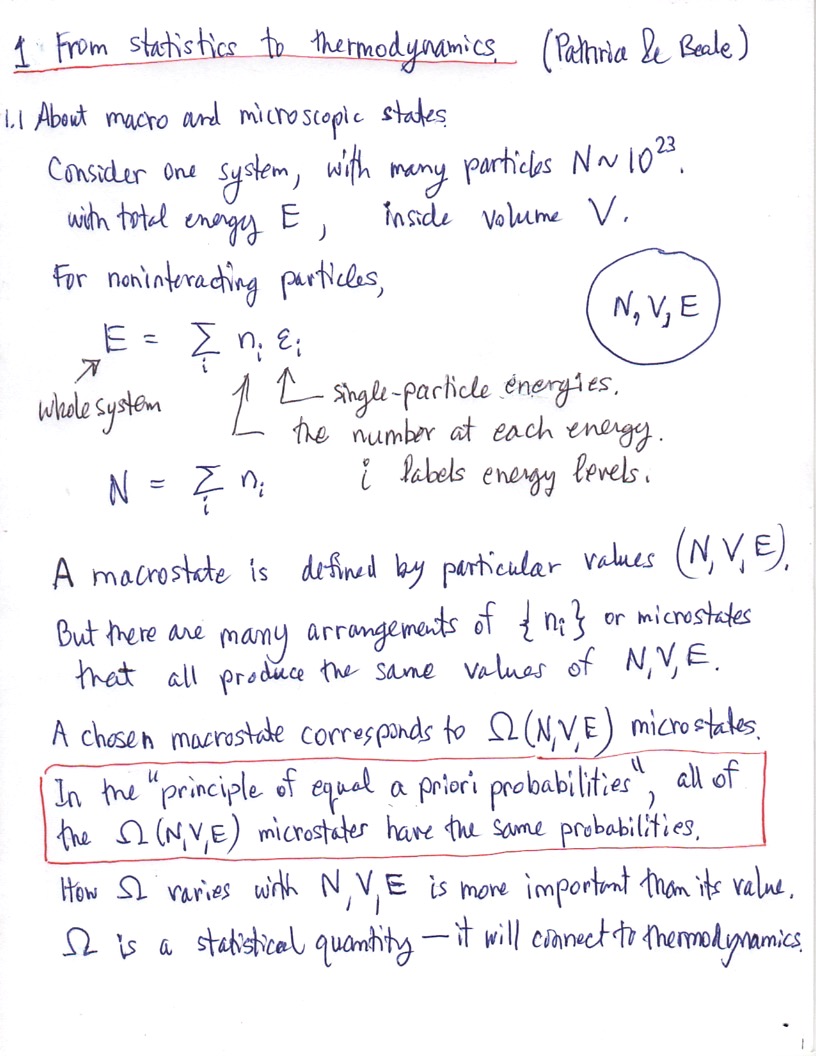 1 From statistics to thermodynamics. (Pathria & Beale)
1.1 About macro and microscopic states.
Consider one system, with many particles N ~ 10²³.
with total energy E, inside volume V.
For noninteracting particles,
N, V, E
E = Σᵢ nᵢ εᵢ
whole system
single-particle energies.
the number at each energy.
N = Σᵢ nᵢ
i labels energy levels.
A macrostate is defined by particular values (N, V, E).
But there are many arrangements of {nᵢ} or microstates
that all produce the same values of N, V, E.
A chosen macrostate corresponds to Ω(N,V,E) microstates.
In the "principle of equal a priori probabilities", all of
the Ω(N,V,E) microstates have the same probabilities.
How Ω varies with N, V, E is more important than its value.
Ω is a statistical quantity — it will connect to thermodynamics.
1